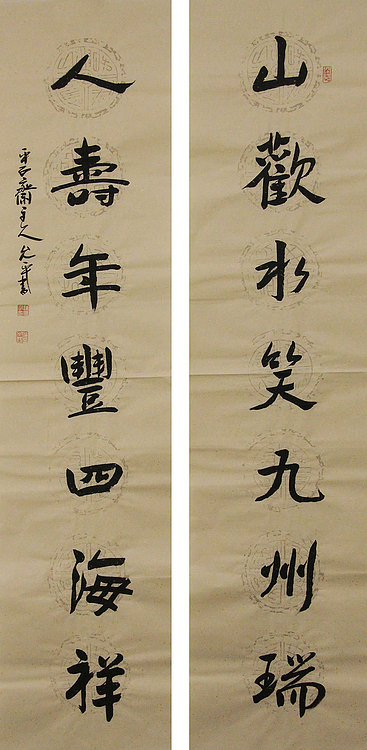 山歡水笑九州瑞
人壽年豐四海祥
主人